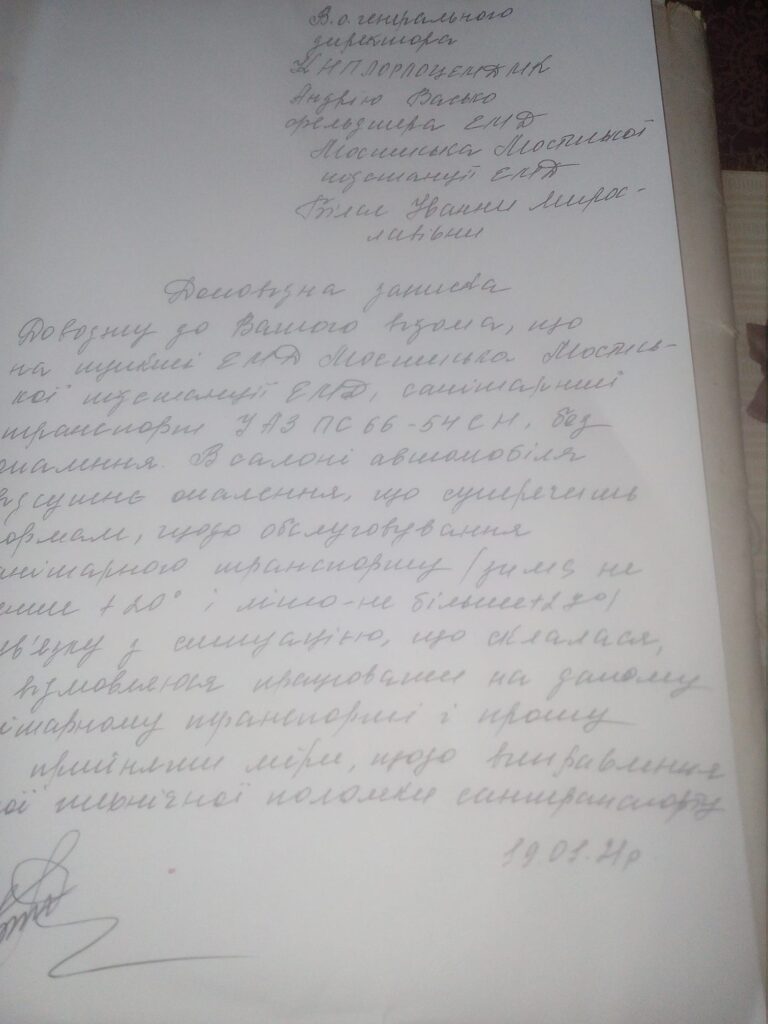 В.о. генерального
директора
КНП ЛОР ЛОЦЕМДМК
Андрію Васько
фельдшера ЕМД
Мостиська Мостиської
підстанції ЕМД
Білас Іванни Мирос-
лавівни
Доповідна записка
Доводжу до Вашого відома, що
на пункті ЕМД Мостиська Мостись-
кої підстанції ЕМД, санітарний
транспорт УАЗ ПС 66-54 СН, без
опалення. В салоні автомобіля
відсутнє опалення, що суперечить
ормам, щодо обслуговування
анітарного транспорту /зима не
енше +20° і літо-не більше+27°/
зв'язку з ситуацією, що склалася,
відмовляюся працювати на даному
ітарному транспорті і прошу
прийняти міри, щодо виправлення
ої технічної поломки санітранспорту
19.01.21р